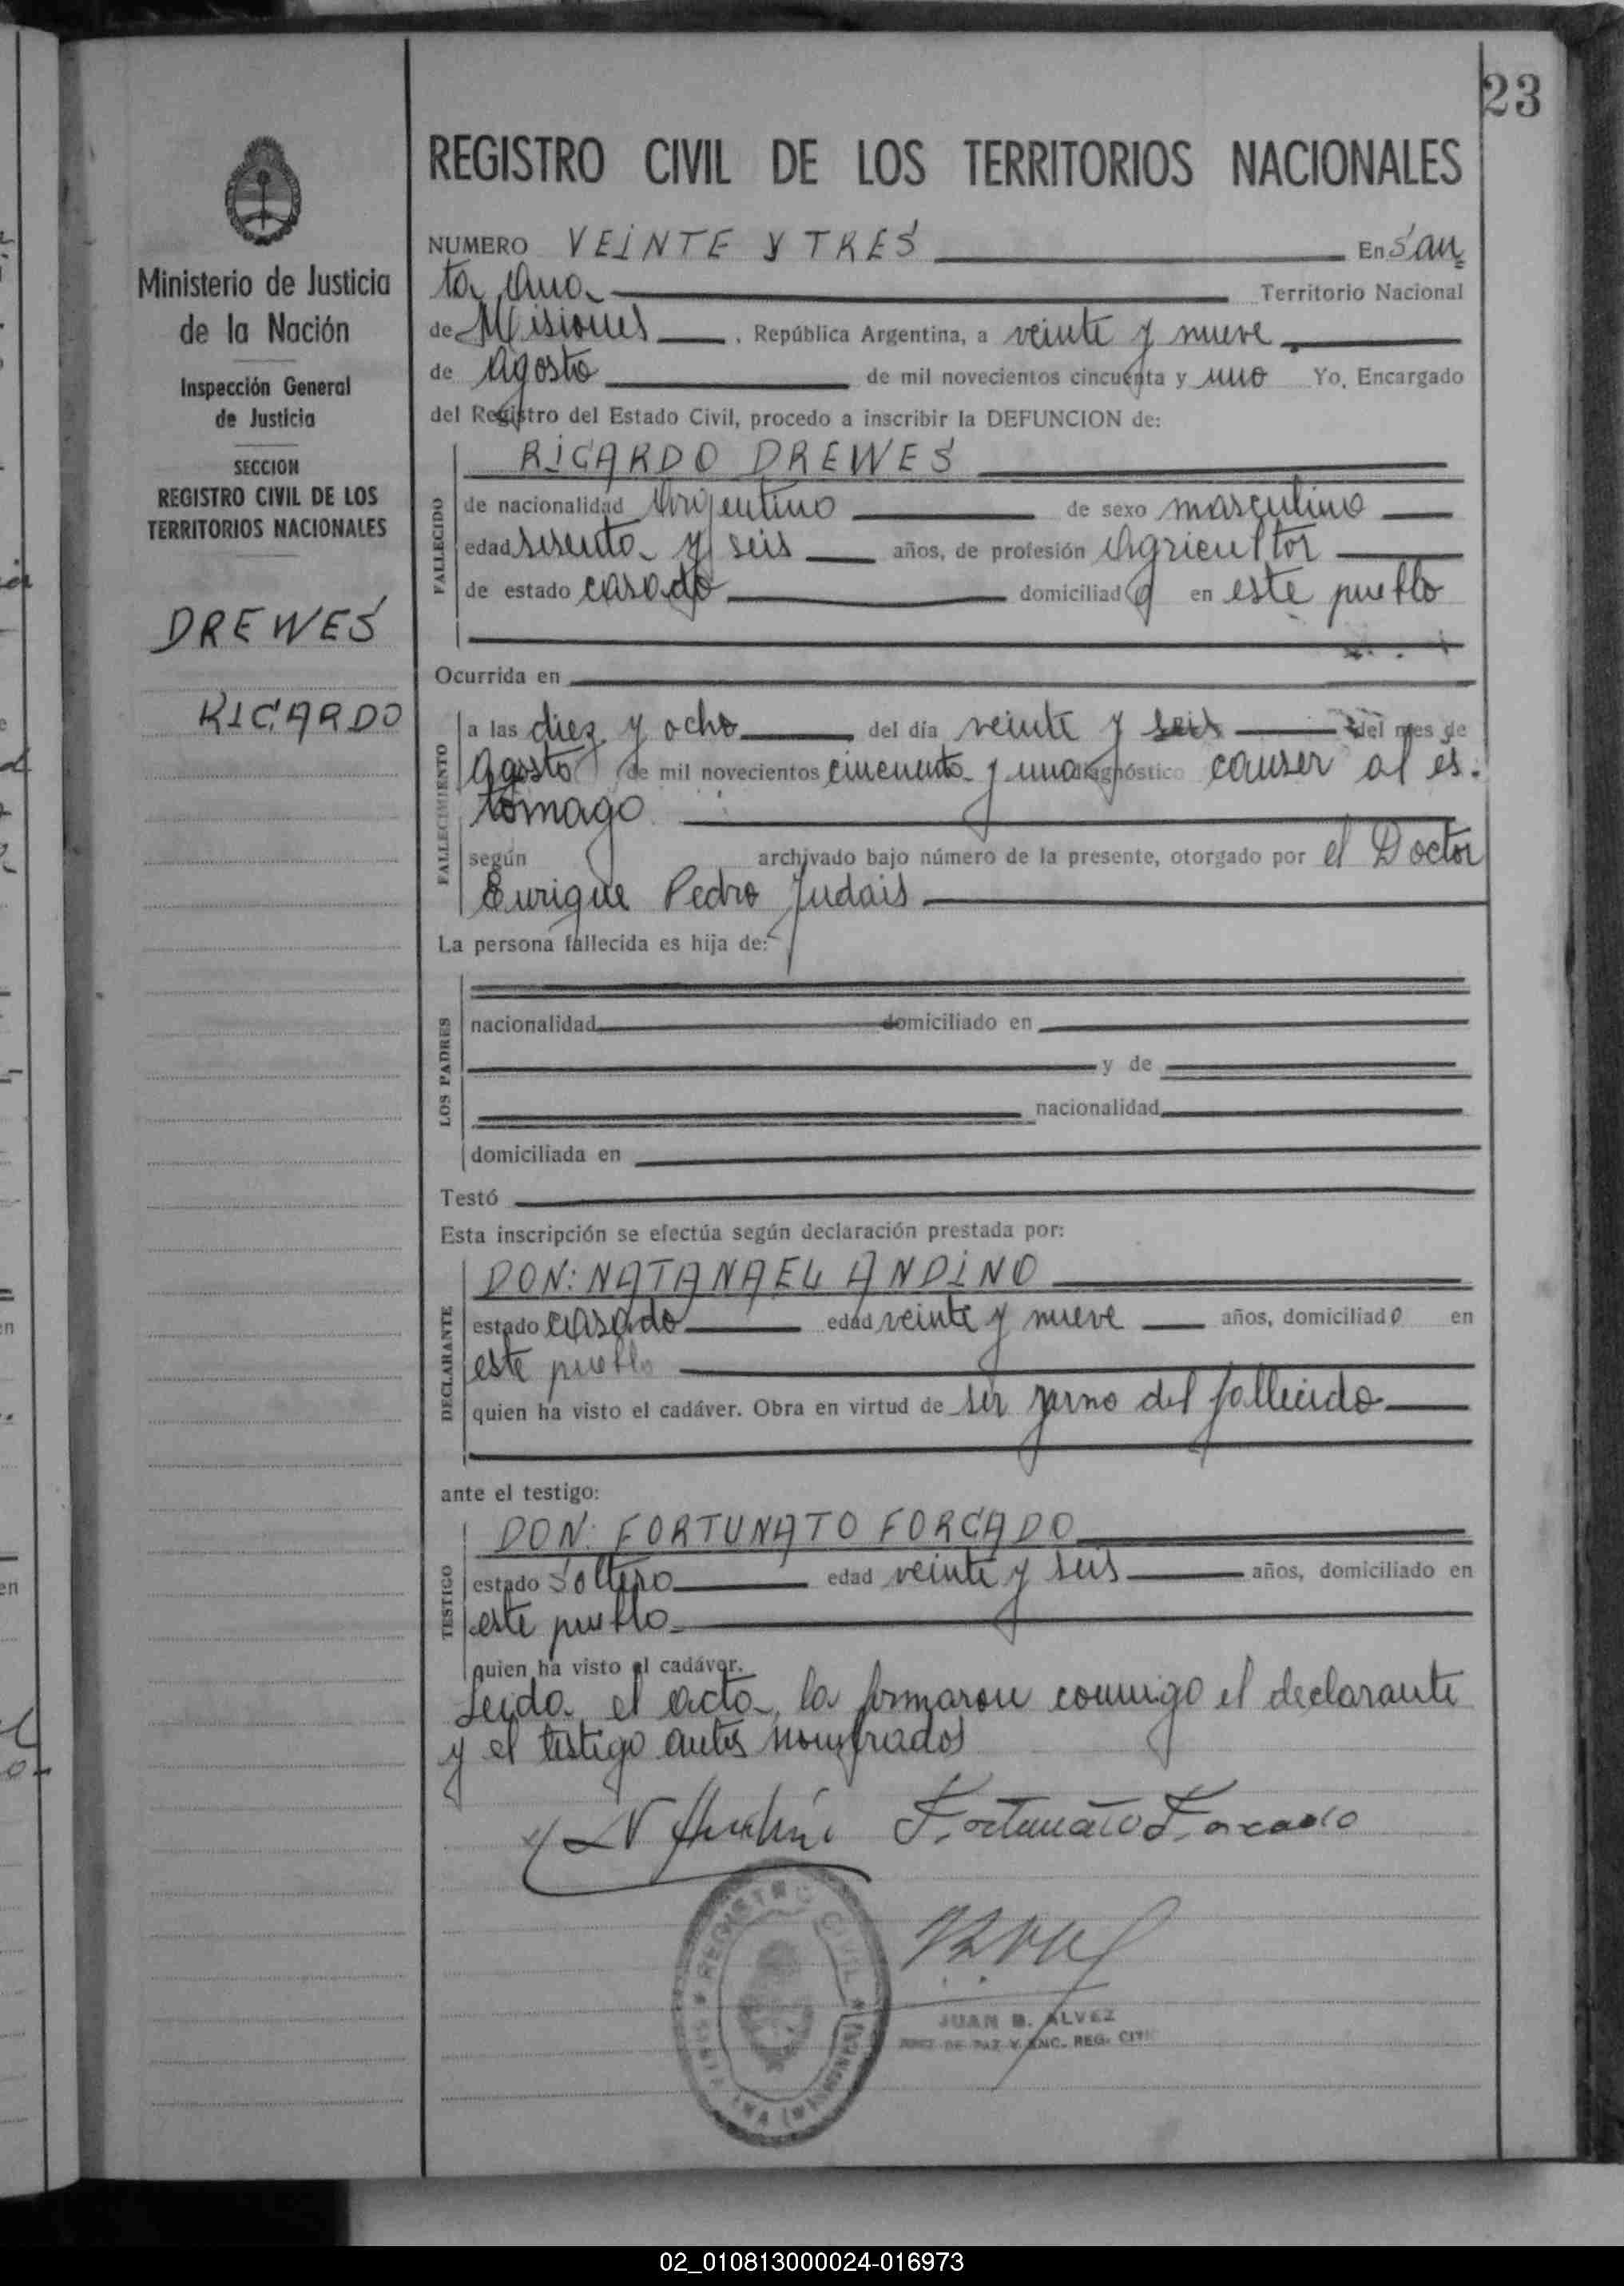 23
REGISTRO CIVIL DE LOS TERRITORIOS NACIONALES
Ministerio de Justicia
de la Nación
Inspección General
de Justicia
SECCION
REGISTRO CIVIL DE LOS
TERRITORIOS NACIONALES
DREWES
RICARDO
NUMERO VEINTE Y TRES En San
ta Ana Territorio Nacional
de Misiones , República Argentina, a veinte y nueve
de Agosto de mil novecientos cincuenta y uno Yo, Encargado
del Registro del Estado Civil, procedo a inscribir la DEFUNCION de:
FALLECIDO
RICARDO DREWES
de nacionalidad Argentino de sexo masculino
edad sesenta y seis años, de profesión Agricultor
de estado casado domiciliado en este pueblo
Ocurrida en
FALLECIMIENTO
a las diez y ocho del día veinte y seis del mes de
Agosto de mil novecientos cincuenta y uno diagnóstico causer al es.
tomago
según archivado bajo número de la presente, otorgado por el Doctor
Enrique Pedro Judais
La persona fallecida es hija de:
LOS PADRES
nacionalidad domiciliado en
y de
nacionalidad
domiciliada en
Testó
Esta inscripción se efectúa según declaración prestada por:
DECLARANTE
DON: NATANAEL ANDINO
estado casado edad veinte y nueve años, domiciliado en
este pueblo
quien ha visto el cadáver. Obra en virtud de ser yerno del fallecido
ante el testigo:
TESTIGO
DON: FORTUNATO FORCADO
estado Soltero edad veinte y seis años, domiciliado en
este pueblo
quien ha visto el cadáver.
Leida el acta, la firmaron conmigo el declarante
y el testigo antes nombrados
N Andino Fortunato Forcado
REGISTRO CIVIL
SANTA ANA (MISIONES)
JUAN B. ALVEZ
JUEZ DE PAZ Y ENC. REG. CIVIL
02_010813000024-016973